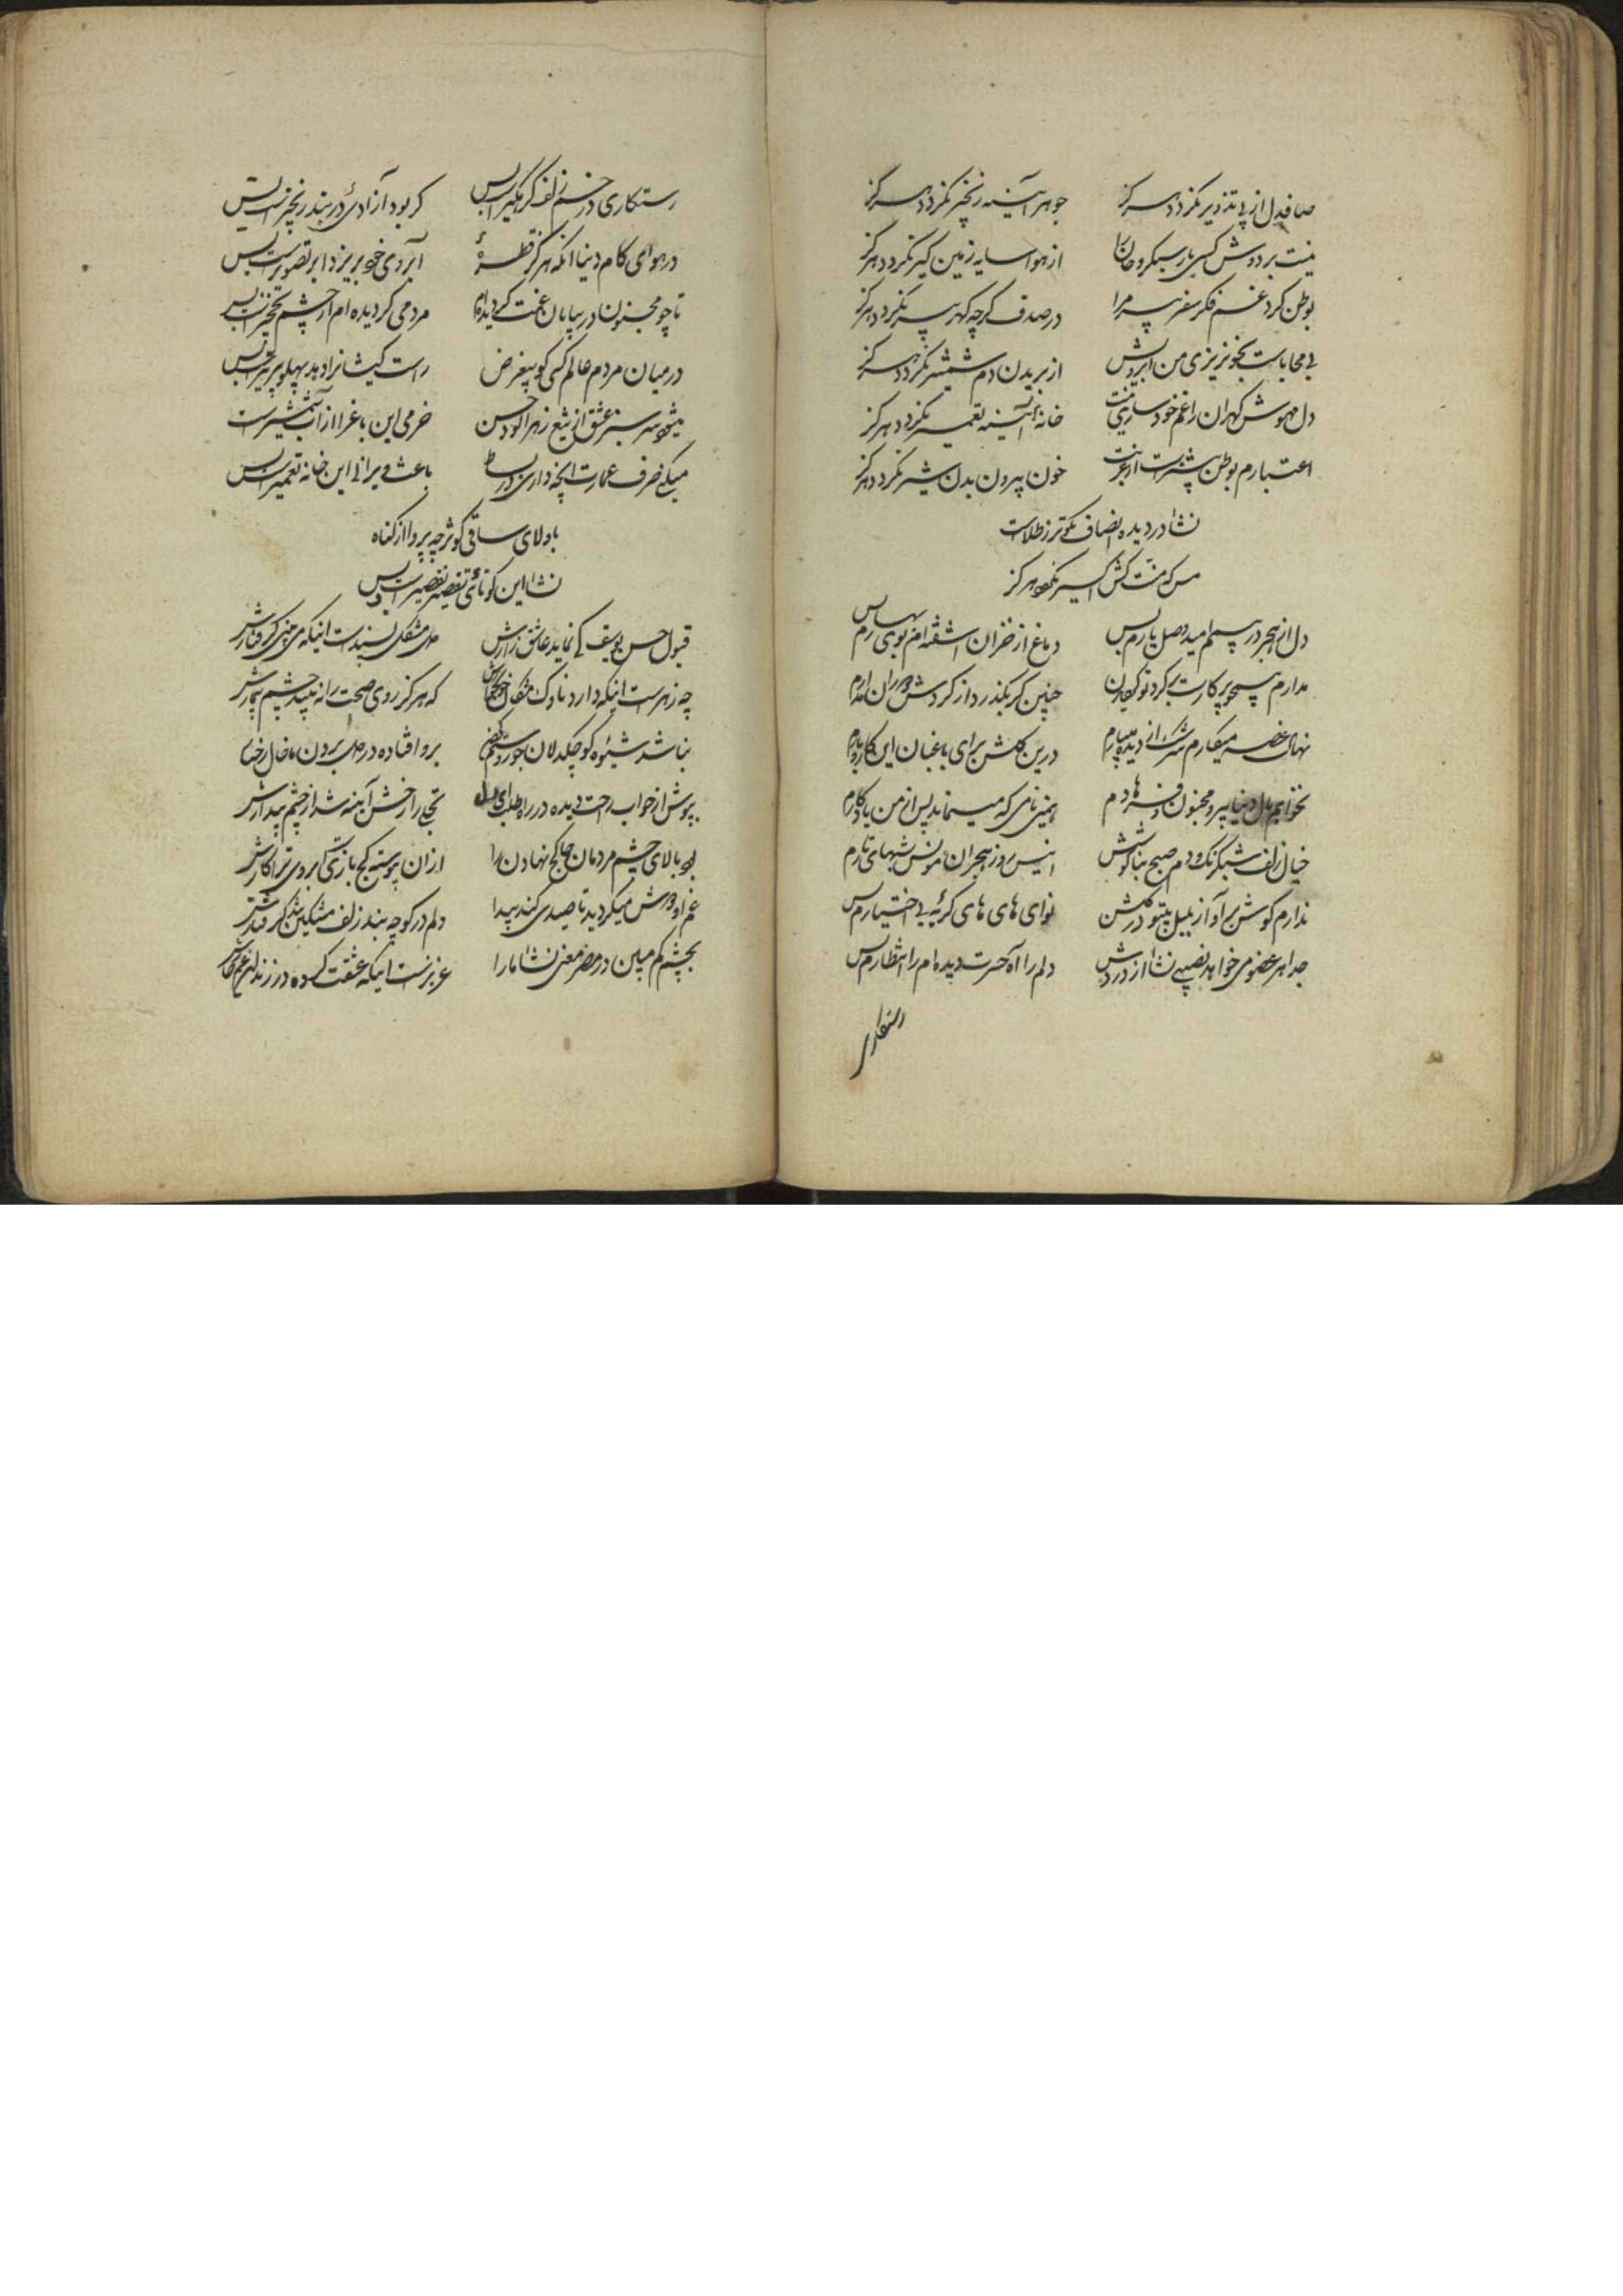 صافدل از پی تزویر نکردد هرکز جوهر آینه زنجیر نکردد هرکز
نیست بر دوش کسی بار سبکروحان را از هوا سایه زمین کیر نکردد هرکز
بوطن کرد غم فکر سفر پیر مرا در صدف کرچه کهر پیر نکردد هرکز
بی محاباست بخونریزی من ابرویش از بریدن دم شمشیر نکردد هرکز
دل مهوش کهران را غم خودسازی نیست خانه آئینه تعمیر نکردد هرکز
اعتبارم بوطن بیشتر است از غربت خون بیرون بدن شیر نکردد هرکز
نشا در دیده انصاف نکوتر ز طلاست
مس که منت کش اکسیر نکردد هرکز
دل از هجر در بیم امید وصل یارم بس دماغ از خزان آشفته ام بوی بهارم بس
ندارم هیچ پرکارت بکرد تو چنین کر بکذرد از کردش دوران مدارم بس
نهال غصه میکارم سرشک از دیده میبارم درین کلشن برای باغبان این کار و بارم بس
نخواهم مال دنیا پیرو مجنون و فرهادم همین نامی که میماند پس از من یادکارم بس
خیال زلف شبرنک و دم صبح بناکوشش انیس روز هجران مونس شبهای تارم بس
ندارم کوش بر آواز بلبل بیتو در کلشن نوای های های کریه بی اختیارم بس
جدا هر عضو می خواهد نصیبی نشا از دردش دلم را آه حسرت دیده ام را انتظارم بس
رستکاری
رستکاری در خم زلف کرهکیر است بس کر بود آزادئی در بند زنجیر است بس
در هوای کام دنیا آنکه هرکز قطرهٔ آبروی خود نریزد ابر تصویر است بس
تا چو مجنون در بیابان غمت کردیده ام مردمی کر دیده ام از چشم نخجیر است بس
در میان مردم عالم کسی کو بیغرض راست کیشانرا دهد پهلو پر تیر است بس
میشود سرسبز عشق از تیغ زهرآلود حسن خرمی این باغ را از آب شمشیر است بس
میکنی صرف عمارت آنچه داری در بساط باعث ویرانی این خانه تعمیر است بس
با ولای ساقی کوثر چه پروا از کناه
نشا این کوتاهی تقصیر تقصیر است بس
قبول حسن یوسف کی نماید عاشق زارش دل مشکل پسند است اینکه می بینی کرفتارش
چه زهرست اینکه دارد ناوک مژکان خونخوارش که هرکز روی صحت را نه بیند چشم بیمارش
نباشد شیوه کوچکدلان جور و ستم برو افتاده در دل بردن ما خال رخسارش
بپوش از خواب راحت دیده در راه طلب ای دل تجلی را رخش آینه شد از چشم بیدارش
بود بالای چشم مردمان جا کج نهادن را ازان پیوسته کج بازی است ابروی ترا کارش
غم او دورش میکردید تا صیدی کند پیدا دلم در کوچه بند زلف مشکین شد کرفتارش
بچشم کم مبین در مصر معنی نشا ما را عزیزست اینکه عشقت کرده در زندان غم خوارش